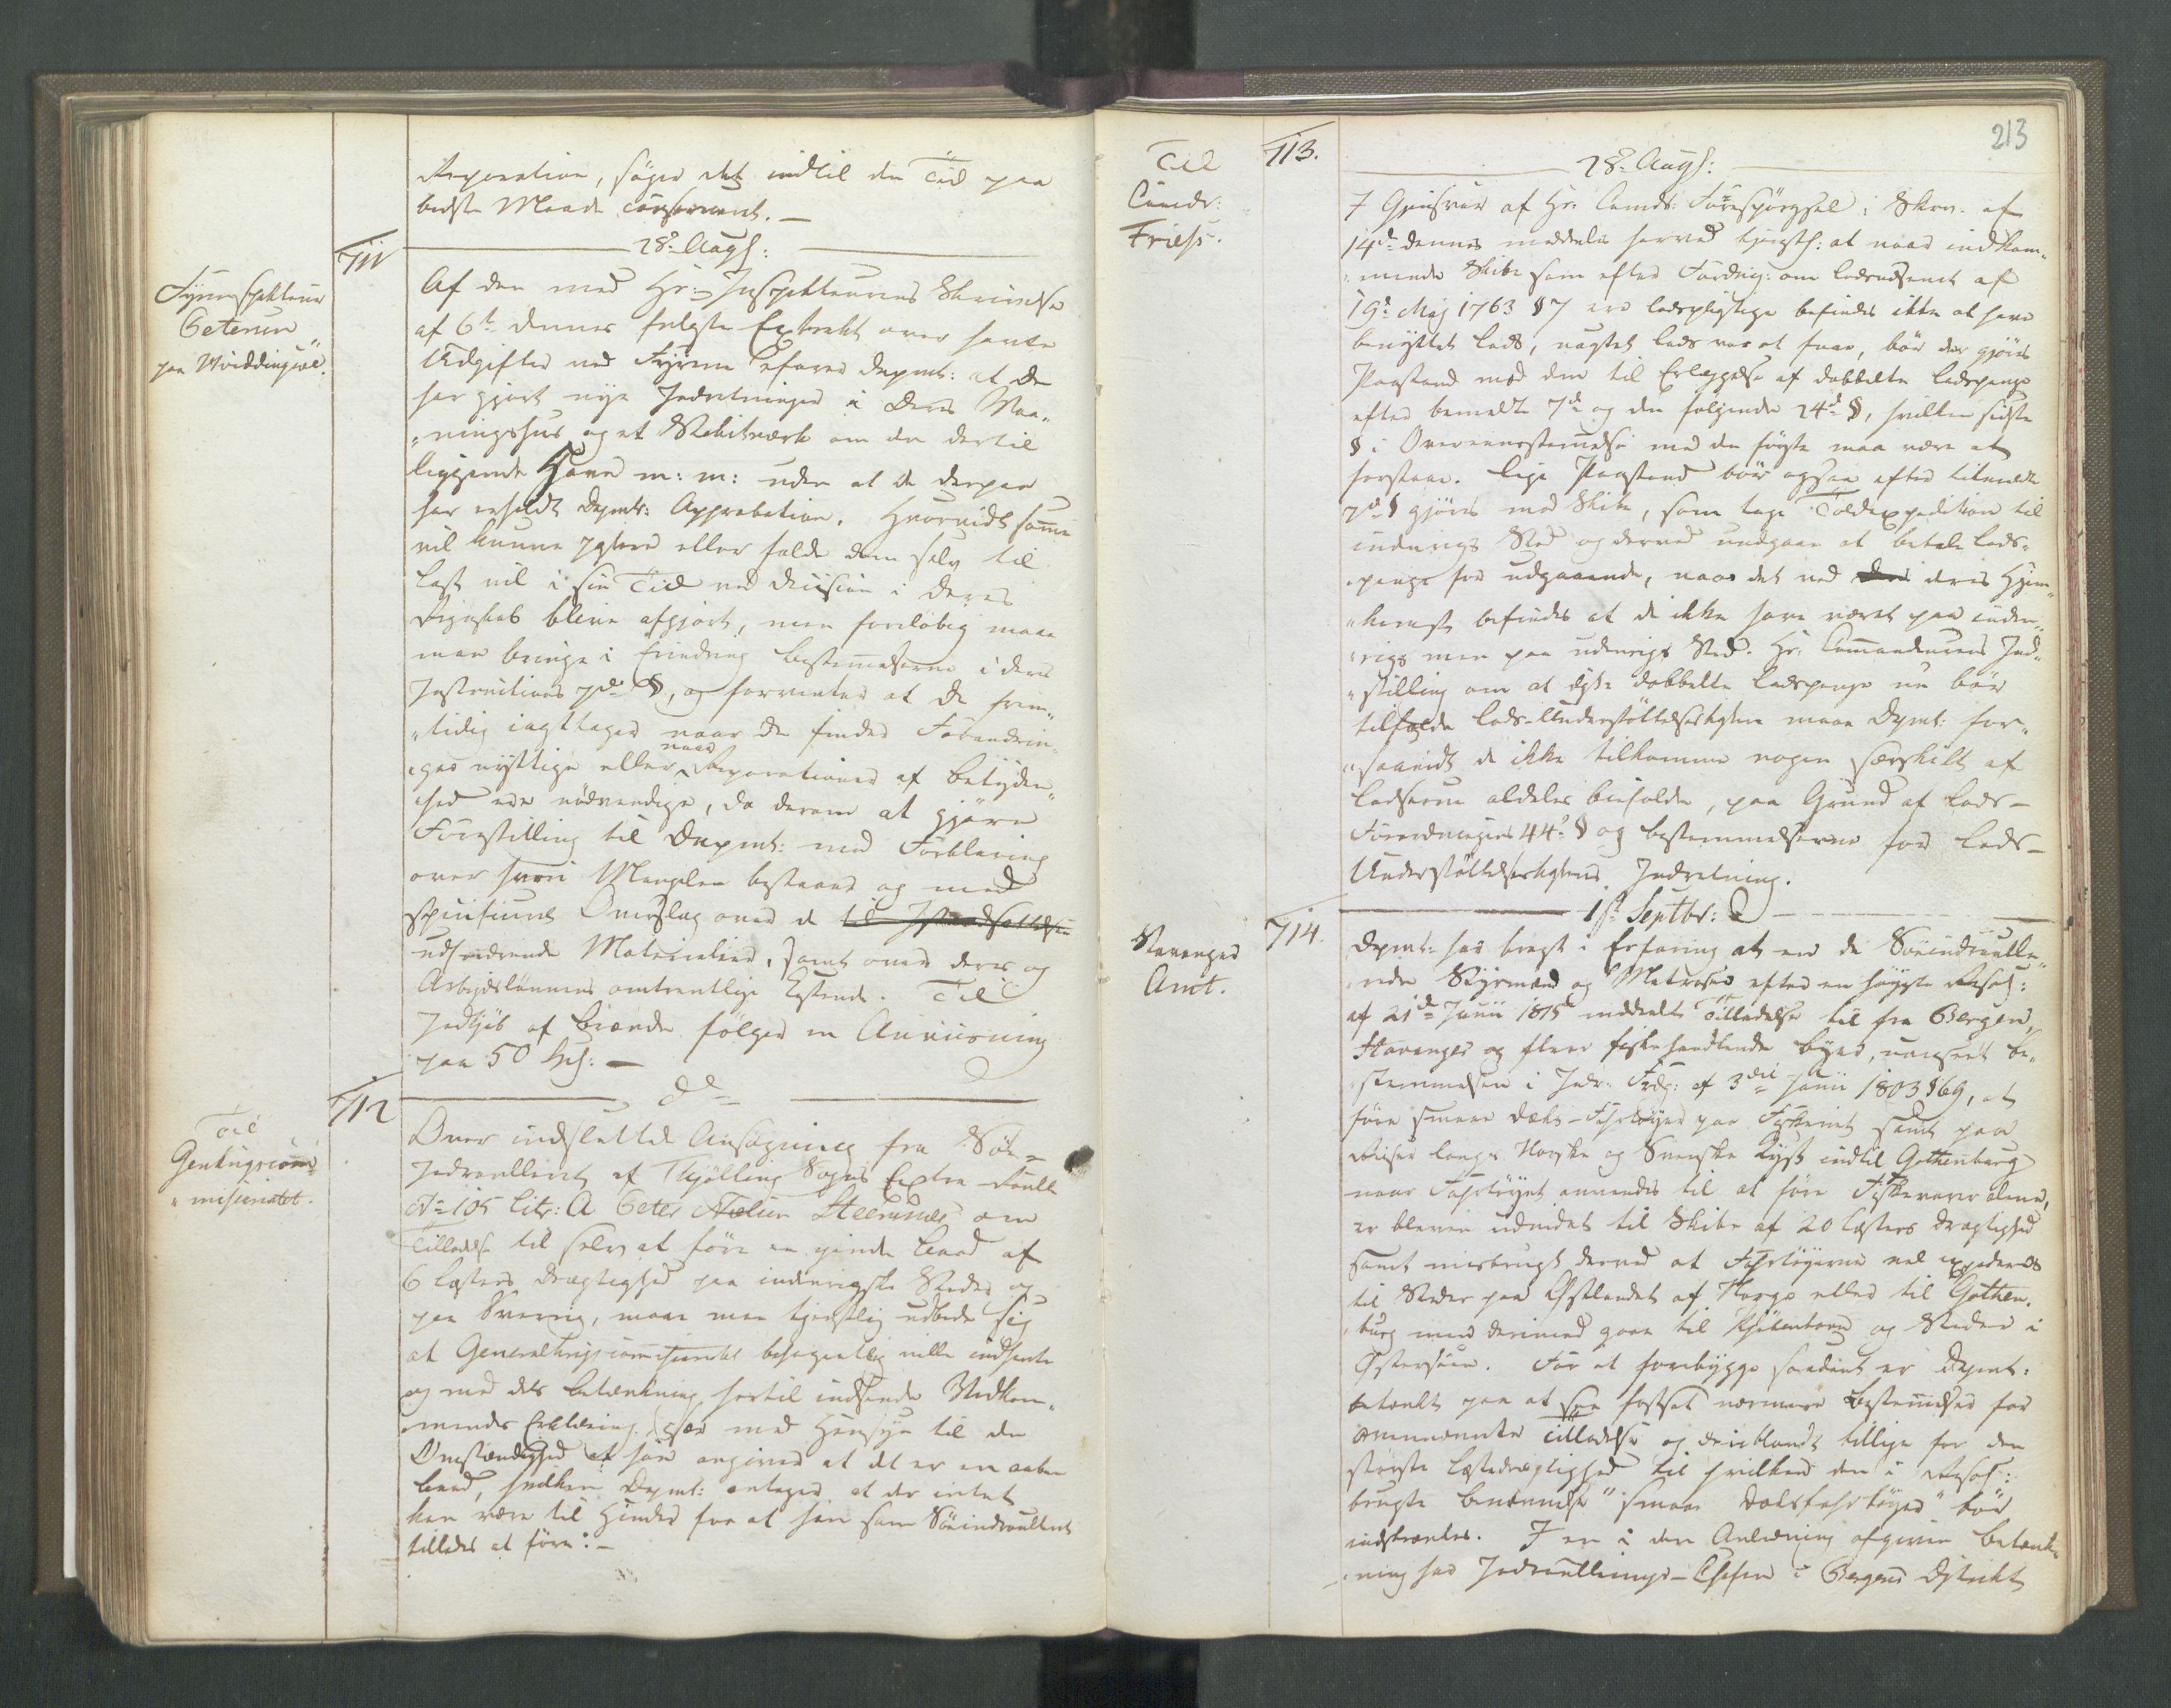 Reparation, søges det indtil den Tid paa
bedste Maade conserveret. —
711
28de Augs:
Fyrinspekteur
Petersen
paa Hviddingsøe.
Af den med Hr: Inspekteurens Skrivelse
af 6te dennes fulgte Extrakt over havte
Udgifter ved Fyrene erfarer Depmt: at De
har gjort nye Indretninger i Deres Vaa„
„ningshus og et Stakitværk om den dertil
liggende Have m: m: uden at De derpaa
har erholdt Depmts: Approbation. Hvorvidt samme
vil kunne passere eller falde dem selv til
Last vil i sin Tid ved Decision i Deres
Regnskab blive afgjort, men foreløbig maae
man bringe i Erindring Bestemmelserne i deres
Instructions 7de §, og forventes at De frem„
„tidig iagttager naar De finder Forandrin„
„ger nyttige eller naar Reparationer af betyden„
„hed ere nødvendige, da derom at gjøre
Forestilling til Depmt: med Forklaring
over hvori Manglen bestaaer og med
specificeret Overslag over de til Istandsættelsen
udfordrende Materialier, samt over deres og
Arbejdslønnens omtrentlige Kostende. Til
Indkjøb af Brænde følger en Anviisning
paa 50 Spd: —
712
do
Til
Genkrigscom„
„missariatet.
Over indsluttede Ansøgning fra Søe-
Indroulleret af Thjølling Sogns Extra Roulle
No 105 Litr: A Peter Nielsen Steensnes om
Tilladelse til selv at føre en ejende Baad af
6 Læsters Drægtighed paa indenrigske Steder og
paa Sverrig, maae man tjenstlig udbede sig
at Generalkrigscommissariatet behagentlig ville indhente
og med dets Betænkning hertil indsende Vedkom„
„mendes Erklæring især med Hensyn til den
Omstændighed at han angiver at det er en aaben
Baad, hvilken Depmt: antager at der intet
kan være til Hinder for at han som Søeindroulleret
tillades at føre: —
213
Til
Comdr:
Friis.
713.
28de Augs:
I Gjensvar af Hr. Comdr: Forespørgsel i Skriv. af
14de dennes meddeles herved tjenstl: at naar indkom„
„mende Skibe som efter Fordng: om Lodsvæsenet af
19de Maj 1763 § 7 ere lodspligtige befindes ikke at have
benyttet Lods, uagtet Lods var at faae, bør der gjøres
Paastand mod dem til Erlæggelse af dobbelte Lodspenge
efter bemeldte 7de og den følgende 24de §, hvilken sidste
§ i Overeensstemmelse med den første maa være at
forstaae. Lige Paastand bør ogsaa efter bemeldte
7de § gjøres mod Skibe, som tage Toldexpedition til
indenrigs Sted og derved undgaae at betale Lods„
„penge for udgaaende, naar det ved deres Hjem„
„komst befindes at de ikke have været paa inden„
„rigs men paa udenrigs Sted. Hr. Commandeurens Ind„
„stilling om at disse dobbelte Lodspenge nu bør
tilfalde Lods-Understøttelseskassen maae Depmt: for„
„saavidt de ikke tilkomme nogen særskilt af
Lodserne aldeles bifalde, paa Grund af Lods-
Forordningens 44de § og Bestemmelserne for Lods-
Understøttelseskassens Indretning.
1ste Septbr:
Stavanger
Amt.
714.
Depmt: har bragt i Erfaring at en de Søeindroulle„
„rede Styrmænd og Matroser efter en høyeste Resol:
af 21de Junii 1815 meddeelt Tilladelse til fra Bergen,
Stavanger og flere fiskehandlende Byer, uanseet Be„
„stemmelsen i Indr: Frdg: af 3die Junii 1803 § 69, at
føre smaae Dæks-Fartøyer paa Fiskeriet samt paa
Reiser langs Norske og Svenske Kyst indtil Gothenburg
naar Fartøyet anvendes til at føre Fiskevarer alene,
er bleven udvidet til Skibe af 20 Læsters Drægtighed
samt misbrugt derved at Fartøyerne vel expederes
til Steder paa Østlandet af Norge eller til Gothen„
„burg men derimod gaae til Kjøbenhavn og Steder i
Østersøen. For at forebygge saadant er Depmt:
betænkt paa at faa fastsat nærmere Bestemmelser for
ovennævnte Tilladelse og deriblandt tillige for den
største Læstedrægtighed til hvilken den i Resol:
brugte Benævnelse "smaae Dæksfartøyer" bør
indskrænkes. I en i den Anledning afgiven Betænk„
„ning har Indroullerings-Chefen i Bergens Distrikt